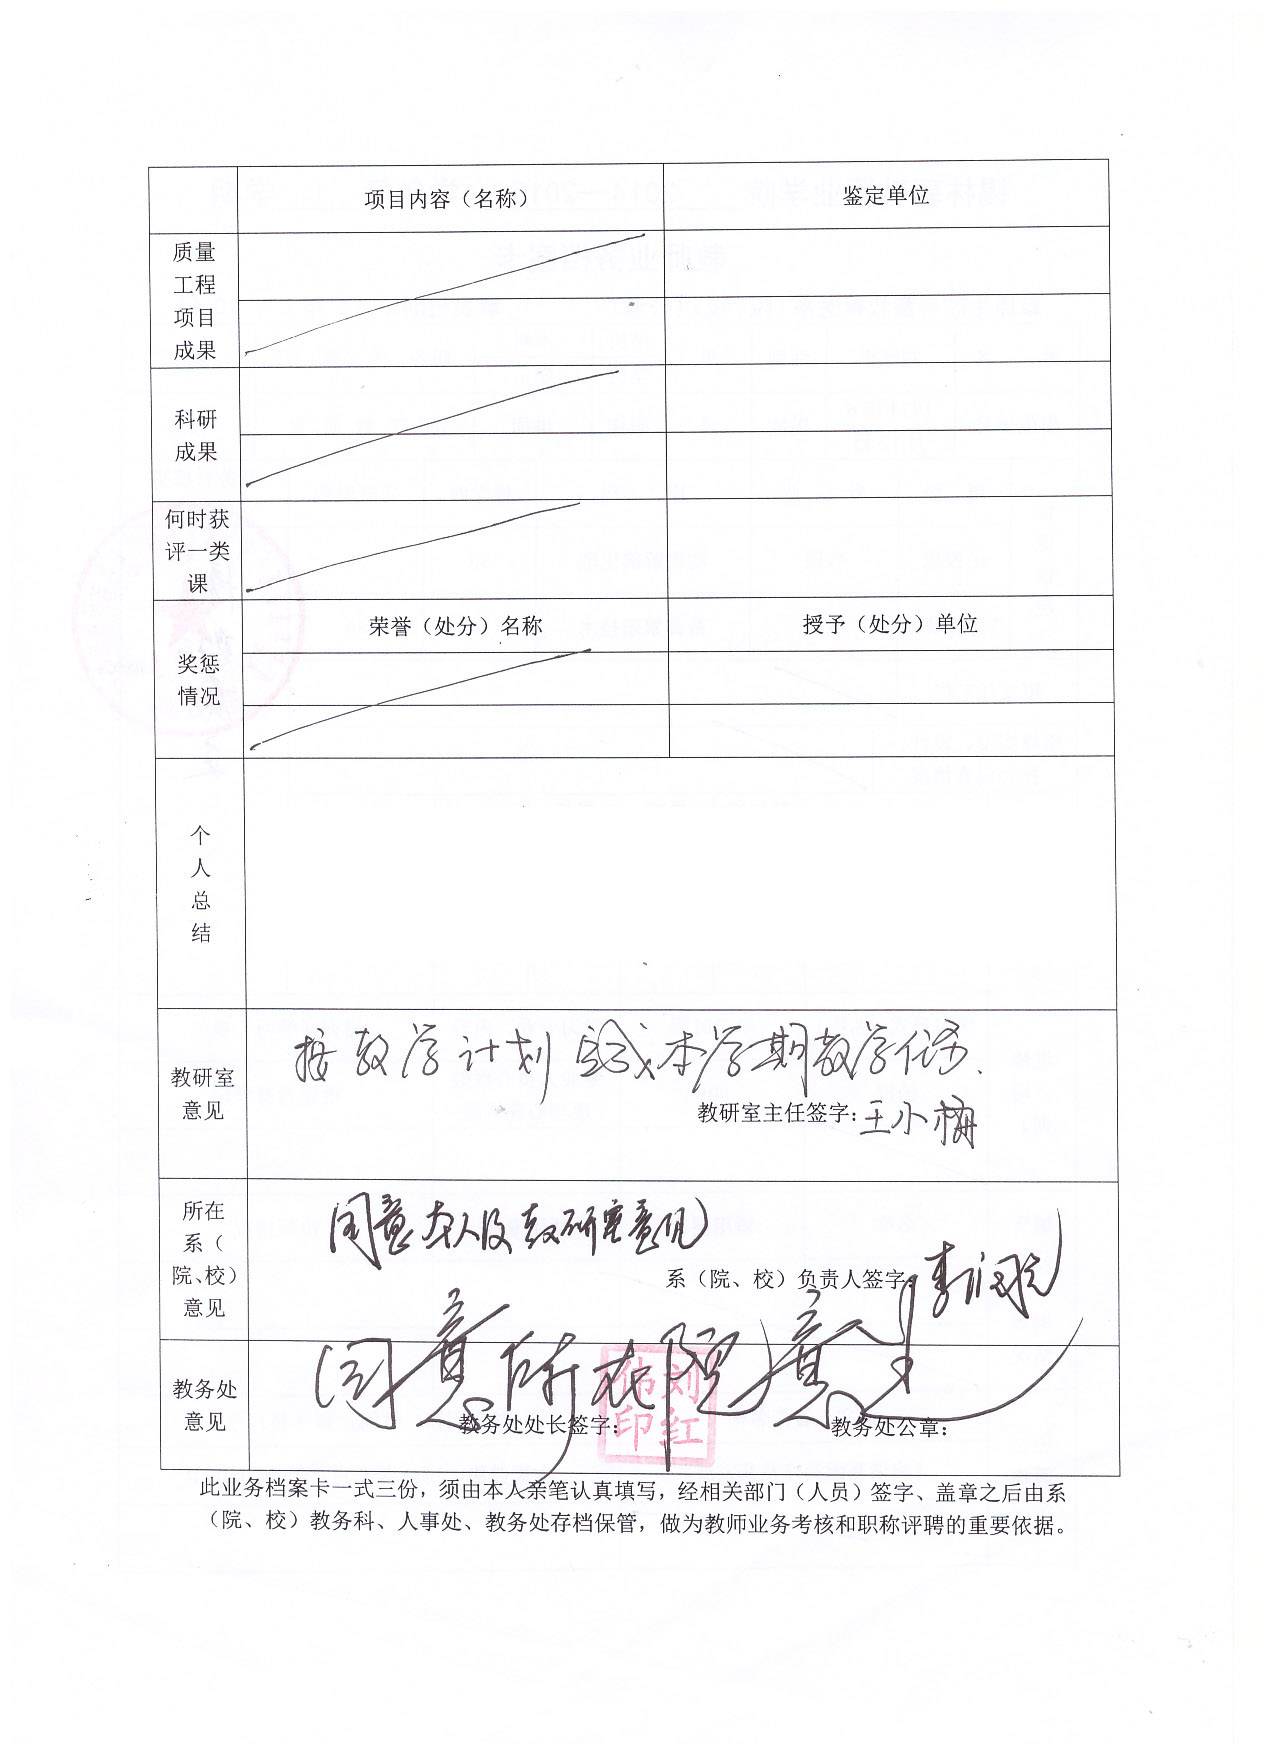 项目内容（名称）
鉴定单位
质量
工程
项目
成果
科研
成果
何时获
评一类
课
奖惩
情况
荣誉（处分）名称
授予（处分）单位
个
人
总
结
教研室
意见
按教学计划完成本学期教学任务.
教研室主任签字:王小梅
所在
系（
院、校）
意见
同意本人及教研室意见
系（院、校）负责人签字:李
教务处
意见
同意所在院意见
教务处处长签字:
刘红伟印
教务处公章:
此业务档案卡一式三份，须由本人亲笔认真填写，经相关部门（人员）签字、盖章之后由系
（院、校）教务科、人事处、教务处存档保管，做为教师业务考核和职称评聘的重要依据。